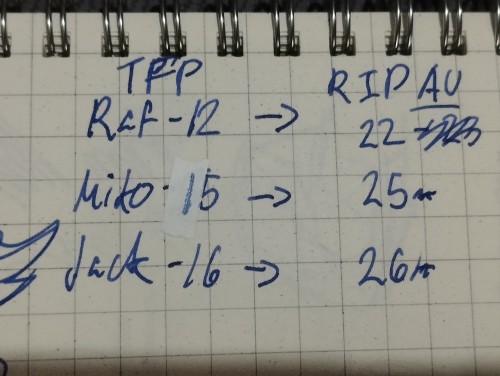 TFP RIP AU
Raf - 12 → 22
Miko - 15 → 25
Jack - 16 → 26